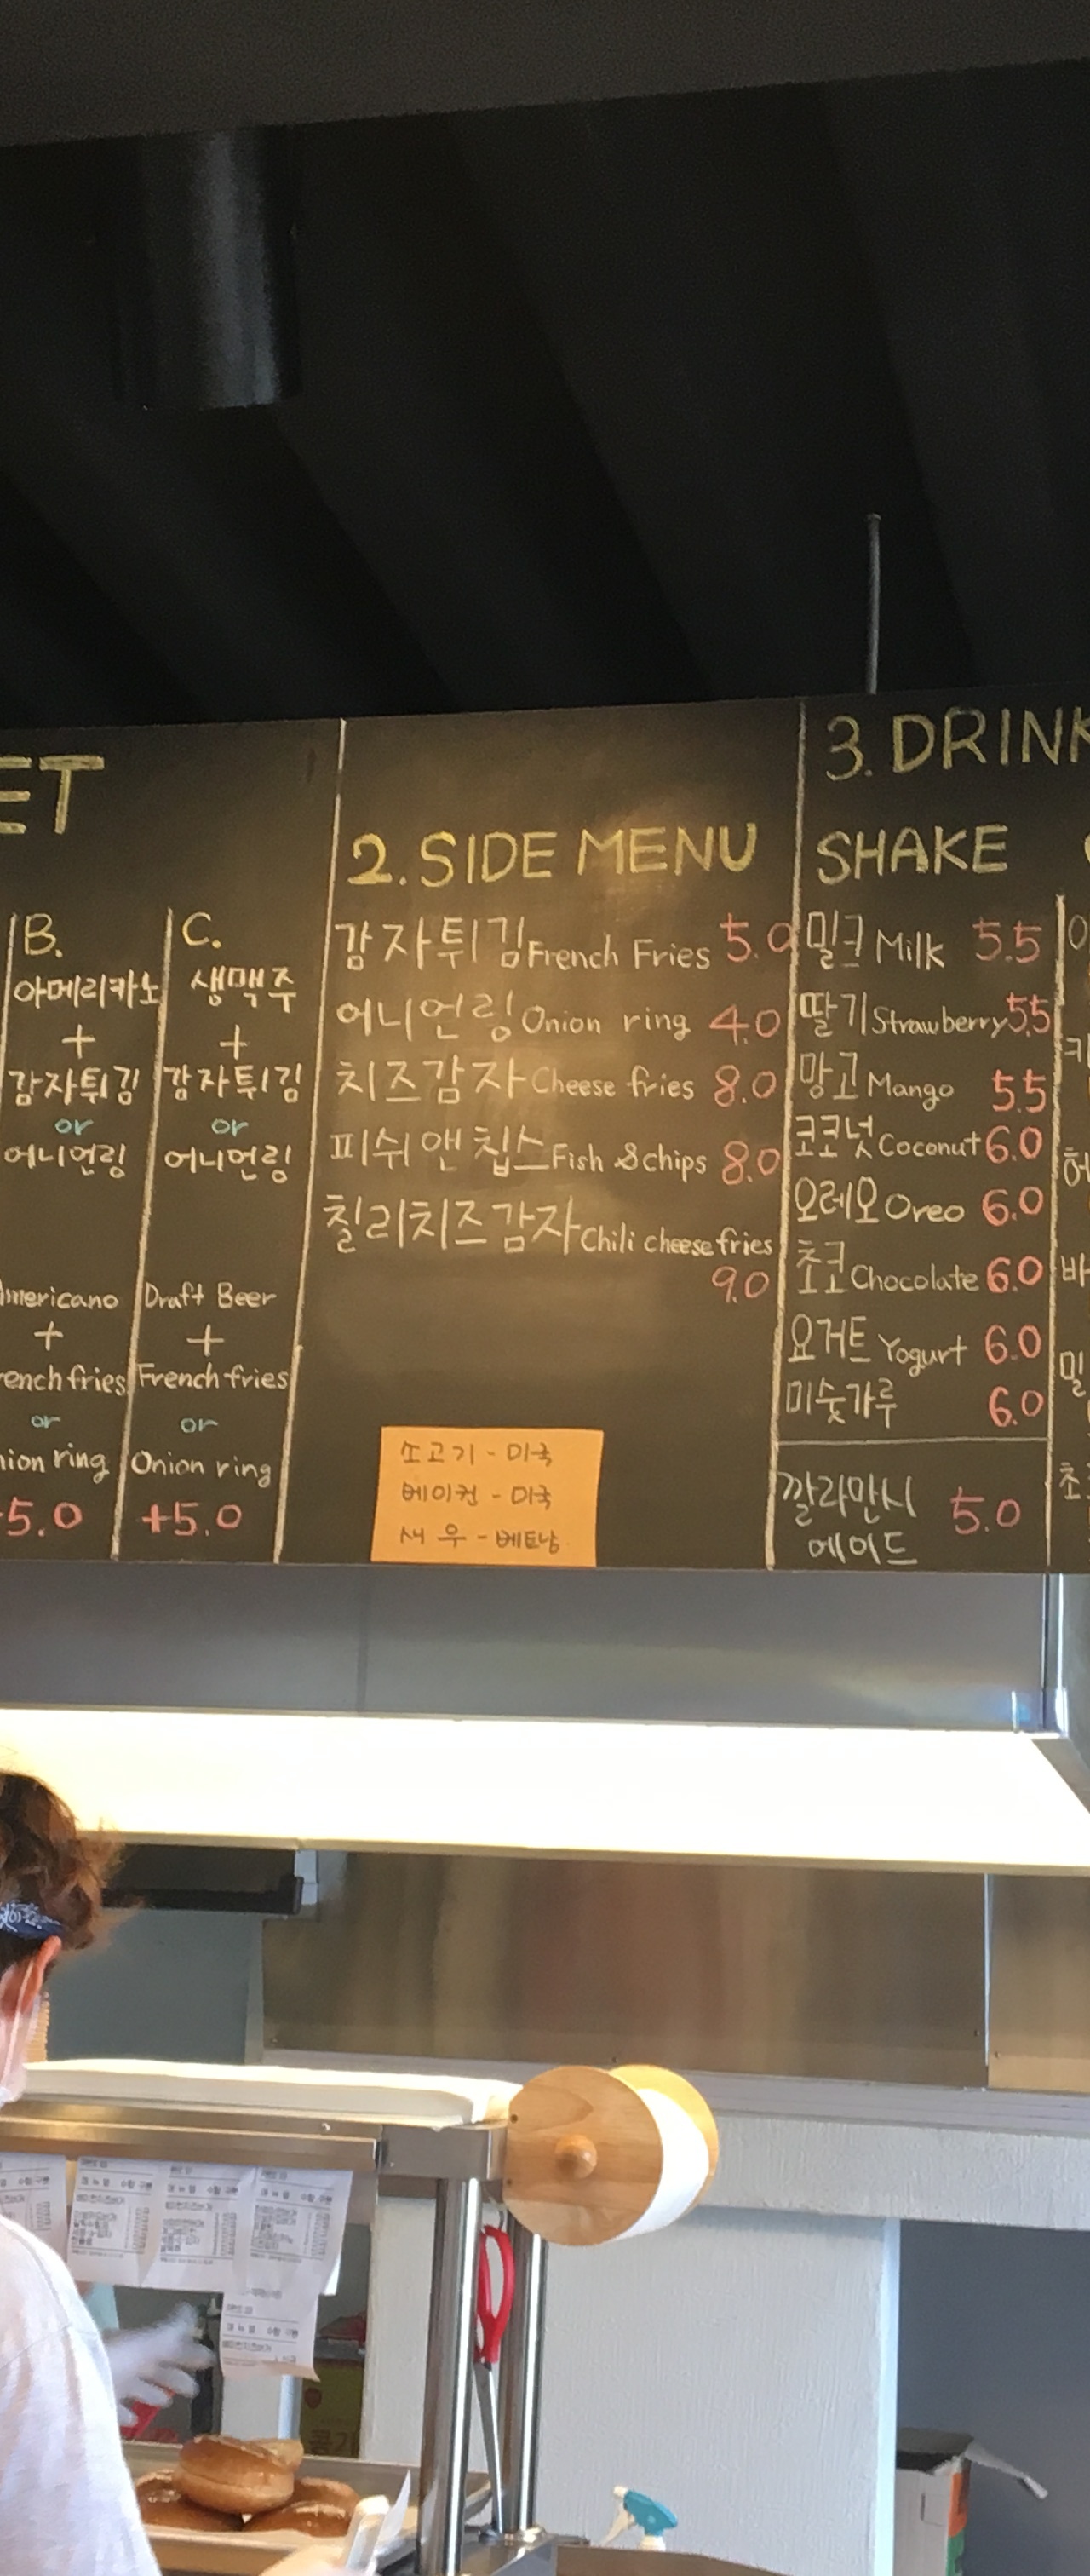 ET
B.
아메리카노
+
감자튀김
or
어니언링
Americano
+
French fries
or
Onion ring
+5.0
C.
생맥주
+
감자튀김
or
어니언링
Draft Beer
+
French fries
or
Onion ring
+5.0
2. SIDE MENU
감자튀김 French Fries 5.0
어니언링 Onion ring 4.0
치즈감자 Cheese fries 8.0
피쉬앤칩스 Fish & chips 8.0
칠리치즈감자 Chili cheese fries
9.0
소고기 - 미국
베이컨 - 미국
새우 - 베트남
3. DRINK
SHAKE
밀크 Milk 5.5
딸기 Strawberry 5.5
망고 Mango 5.5
코코넛 Coconut 6.0
오레오 Oreo 6.0
초코 Chocolate 6.0
요거트 Yogurt 6.0
미숫가루 6.0
깔라만시 5.0
에이드